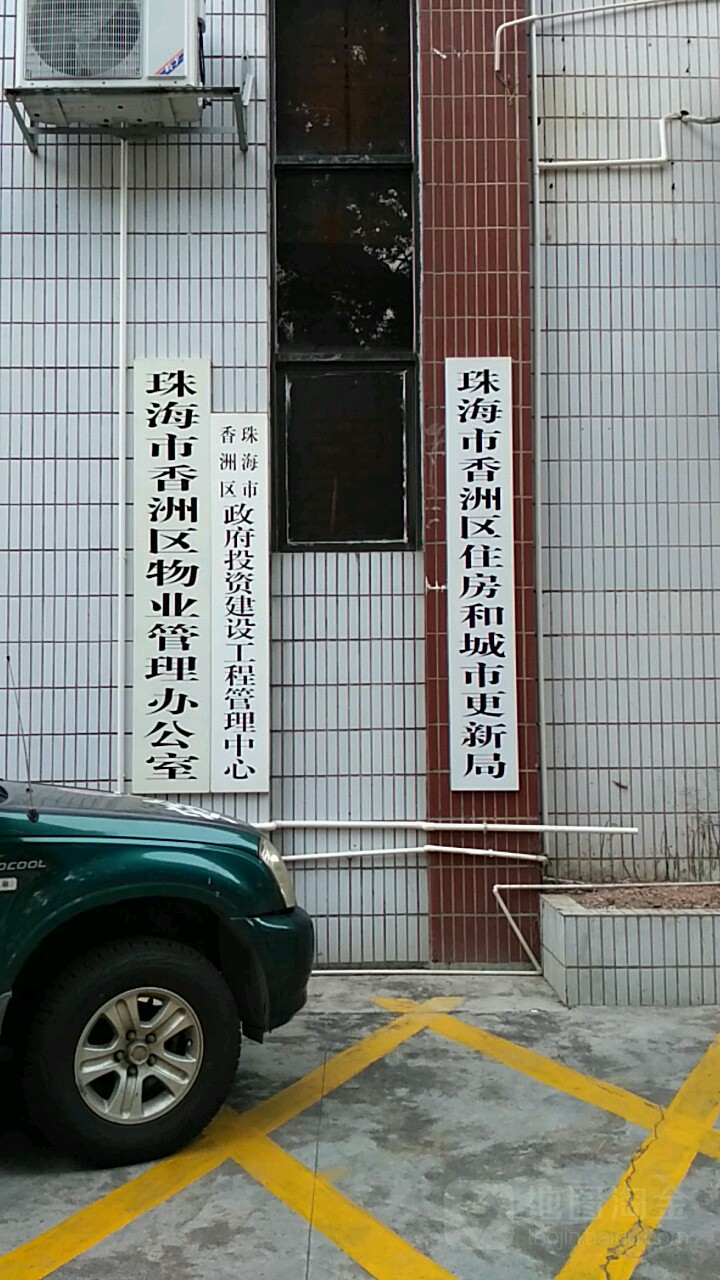 珠海市香洲区物业管理办公室
珠海市
香洲区
政府投资建设工程管理中心
珠海市香洲区住房和城市更新局
地图淘金